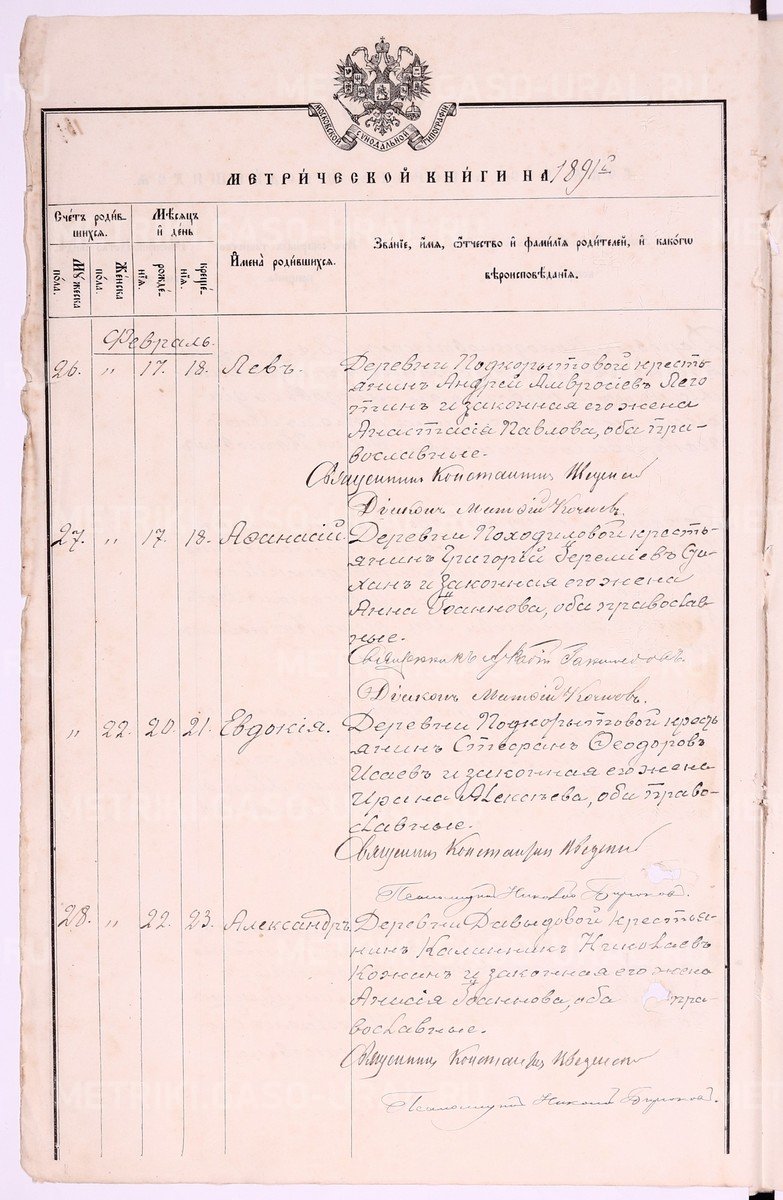 МОСКОВСКОЙ СѴНОДАЛЬНОЙ ТИПОГРАФІИ
МЕТРИ́ЧЕСКОЙ КНИ́ГИ НА 1891 г.
Сче́тъ роди́вшихся.
Мѣ́сяцъ и҆ де́нь
И҆мена̀ роди́вшихся.
Зва́нїе, и҆́мя, ѻ҆́тчество и҆ фами́лїя роди́телей, и҆ како́гѡ
вѣроисповѣ́данїя.
Мꙋ́жеска по́ла.
Же́нска по́ла.
рожде́нїѧ.
креще́нїѧ.
Февраль.
26. „ 17. 18. Левъ. Деревни Подкорытовой кресть-
янинъ Андрей Амвросіевъ Лего
тинъ и законная его жена
Анастасія Павлова, оба пра-
вославные.
Священникъ Константинъ
Діаконъ Матѳій Кочневъ.
27. „ 17. 18. Аѳанасій. Деревни Походиловой кресть-
янинъ Григорій Іереміевъ Су-
ханъ и законная его жена
Анна Іоаннова, оба православ-
ные.
Священникъ
Діаконъ Матѳій Кочневъ.
„ 22. 20. 21. Евдокія. Деревни Подкорытовой кресть
янинъ Стефанъ Ѳеодоровъ
Исаевъ и законная его жена
Ирина Алексѣева, оба право-
славные.
Священникъ Константинъ
Псаломщикъ Николай Бирюковъ.
28. „ 22. 23. Александръ. Деревни Давыдовой крестья-
нинъ Калинникъ Николаевъ
Кожинъ и законная его жена
Анисія Іоаннова, оба пра-
вославные.
Священникъ Константинъ
Псаломщикъ Николай Бирюковъ.